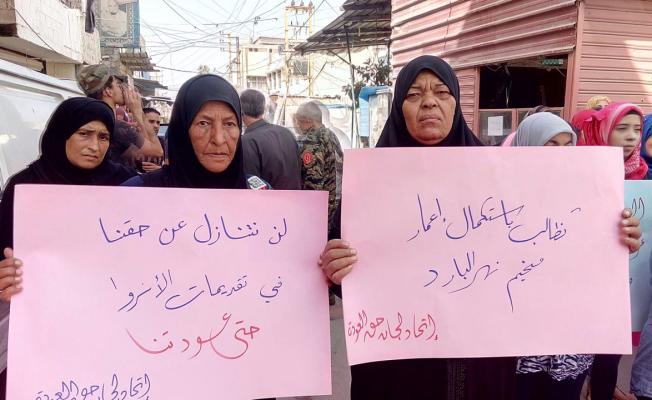 لن نتنازل عن حقنا
في تقديمات الأنروا
حتى عودتنا
إتحاد لجان حق العودة
نطالب باستكمال إعمار
مخيم نهر البارد
إتحاد لجان حق العودة